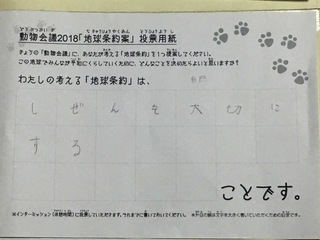 動物会議2018「地球条約案」投票用紙
きょうの「動物会議」に、あなたが考える「地球条約」を1つ提案してください。
この地球でみんなが平和にくらしていくために、どんなことを決めたらよいと思いますか?
わたしの考える「地球条約」は、
自然
しぜんを大切に
する
ことです。